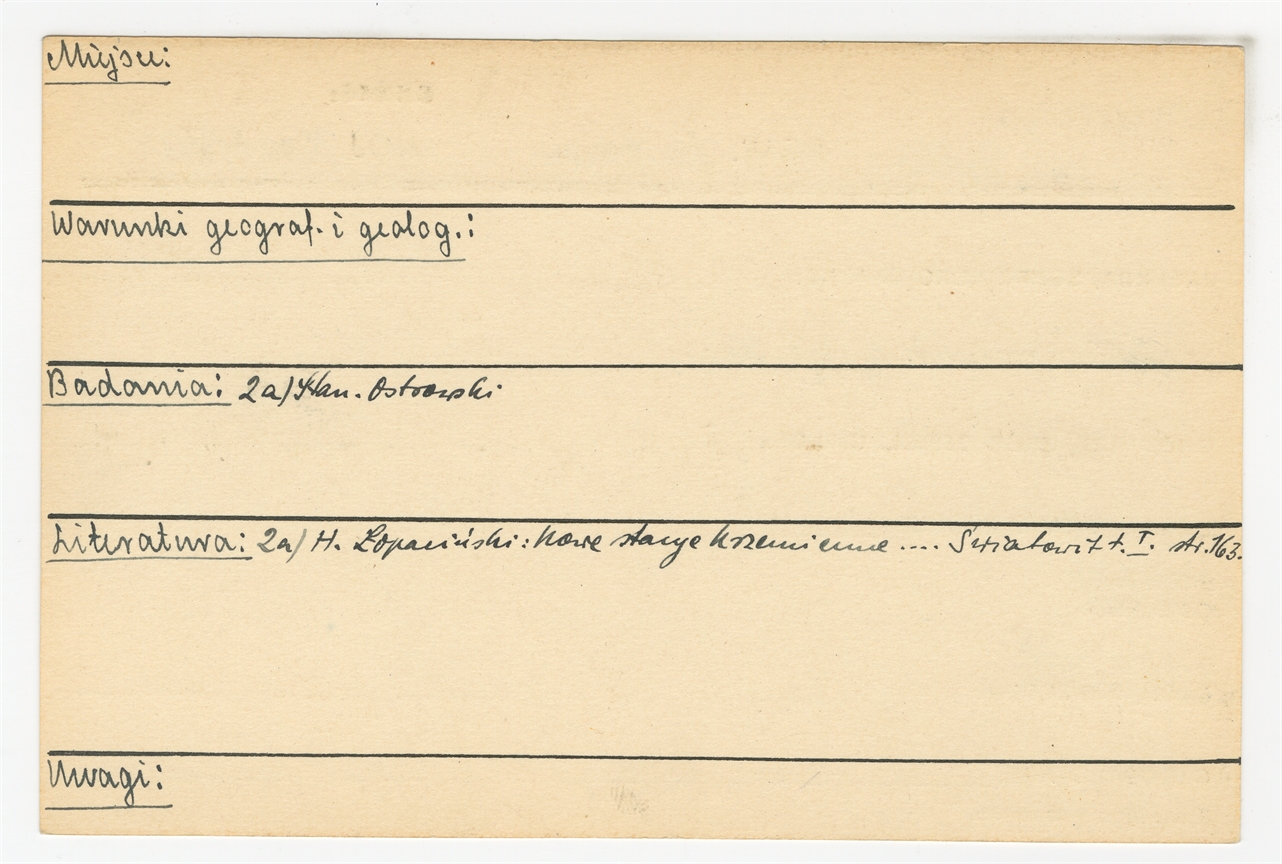 Miejsce:
Warunki geograf. i geolog.:
Badania: 2a) Stan. Ostrowski
Literatura: 2a) H. Łopaciński: Nowe stacye krzemienne .... Światowit t. I. str. 163.
Uwagi: